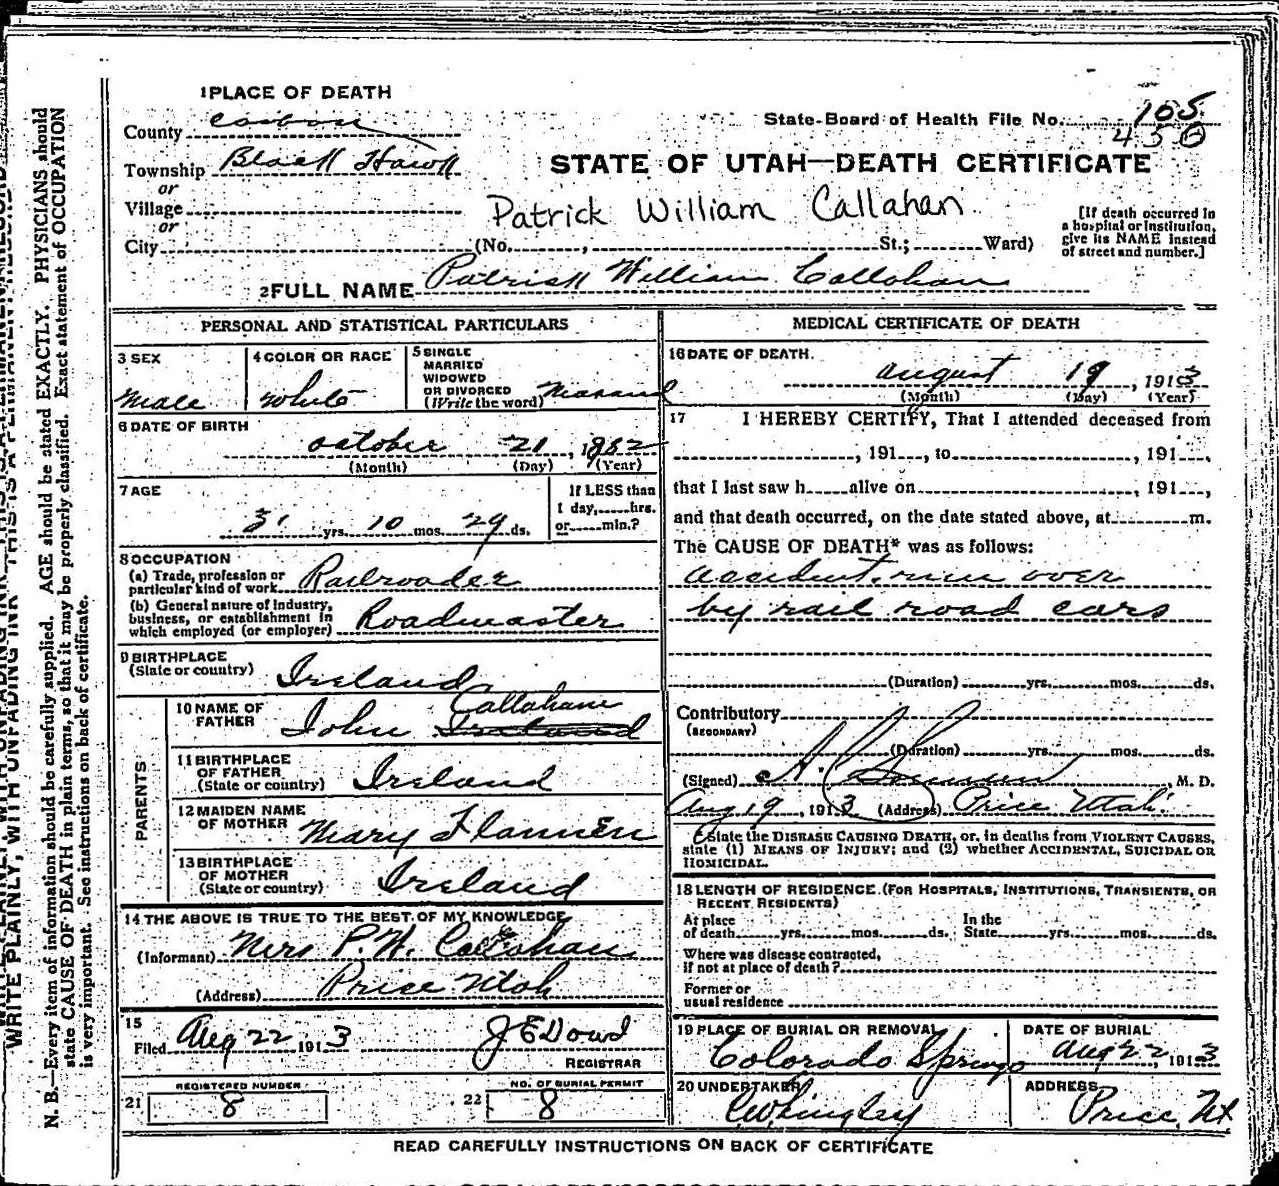 1 PLACE OF DEATH
County Carbon
Township Black Hawk
or
Village
or
City (No. , St.; Ward)
State Board of Health File No. 105
450
STATE OF UTAH—DEATH CERTIFICATE
Patrick William Callahan
[If death occurred in
a hospital or institution,
give its NAME instead
of street and number.]
2 FULL NAME Patrick William Callahan
PERSONAL AND STATISTICAL PARTICULARS
3 SEX
Male
4 COLOR OR RACE
White
5 SINGLE
MARRIED
WIDOWED
OR DIVORCED
(Write the word) Married
6 DATE OF BIRTH
October 21, 1852
(Month) (Day) (Year)
7 AGE
31 yrs. 10 mos. 29 ds.
If LESS than
1 day, hrs.
or min.?
8 OCCUPATION
(a) Trade, profession or
particular kind of work Railroader
(b) General nature of industry,
business, or establishment in
which employed (or employer) Roadmaster
9 BIRTHPLACE
(State or country) Ireland
PARENTS
10 NAME OF
FATHER John Callahan
11 BIRTHPLACE
OF FATHER
(State or country) Ireland
12 MAIDEN NAME
OF MOTHER Mary Flannen
13 BIRTHPLACE
OF MOTHER
(State or country) Ireland
14 THE ABOVE IS TRUE TO THE BEST OF MY KNOWLEDGE
(Informant) Mrs P. W. Callahan
(Address) Price Utah
15
Filed Aug 22 1913 J E Dowd
REGISTRAR
REGISTERED NUMBER
21 8
NO. OF BURIAL PERMIT
22 8
MEDICAL CERTIFICATE OF DEATH
16 DATE OF DEATH
August 19, 1913
(Month) (Day) (Year)
17 I HEREBY CERTIFY, That I attended deceased from
, 191 , to , 191 ,
that I last saw h alive on , 191 ,
and that death occurred, on the date stated above, at m.
The CAUSE OF DEATH* was as follows:
accident. run over
by rail road cars
(Duration) yrs. mos. ds.
Contributory
(SECONDARY)
(Duration) yrs. mos. ds.
(Signed) M. D.
Aug 19, 1913 (Address) Price Utah
*State the DISEASE CAUSING DEATH, or, in deaths from VIOLENT CAUSES,
state (1) MEANS OF INJURY; and (2) whether ACCIDENTAL, SUICIDAL OR
HOMICIDAL.
18 LENGTH OF RESIDENCE (FOR HOSPITALS, INSTITUTIONS, TRANSIENTS, OR
RECENT RESIDENTS)
At place In the
of death yrs. mos. ds. State yrs. mos. ds.
Where was disease contracted,
if not at place of death?
Former or
usual residence
19 PLACE OF BURIAL OR REMOVAL
Colorado Springs
DATE OF BURIAL
Aug 22, 1913
20 UNDERTAKER
ADDRESS
Price, Ut
READ CAREFULLY INSTRUCTIONS ON BACK OF CERTIFICATE
N. B.—Every item of information should be carefully supplied. AGE should be stated EXACTLY. PHYSICIANS should
state CAUSE OF DEATH in plain terms, so that it may be properly classified. Exact statement of OCCUPATION
is very important. See instructions on back of certificate.
WRITE PLAINLY, WITH UNFADING INK